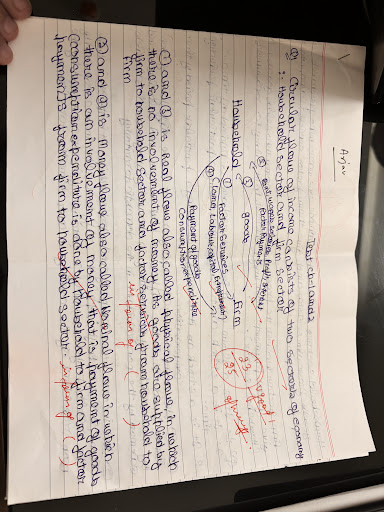 Anjau
1
Test ch-1 and 2
Q) Circular flow of income consists of two sectors of economy
:- Household sector and firm sector
Factor Payments
goods
Household
Firm
Factor Services
(Land, Labour, capital, Entrepreneur)
Payment of goods
Consumption expenditure
23
25
① and ③, is Real flow also called physical flow in which
there is no involvement of money. As goods are supplied by
firm to household sector and factor services from household to
firm
② and ④ is Money flow also called Nominal flow in which
there is an involvement of money, that is payment of goods
(consumption expenditure is done by household to firm and factor
payments from firm to household sector.